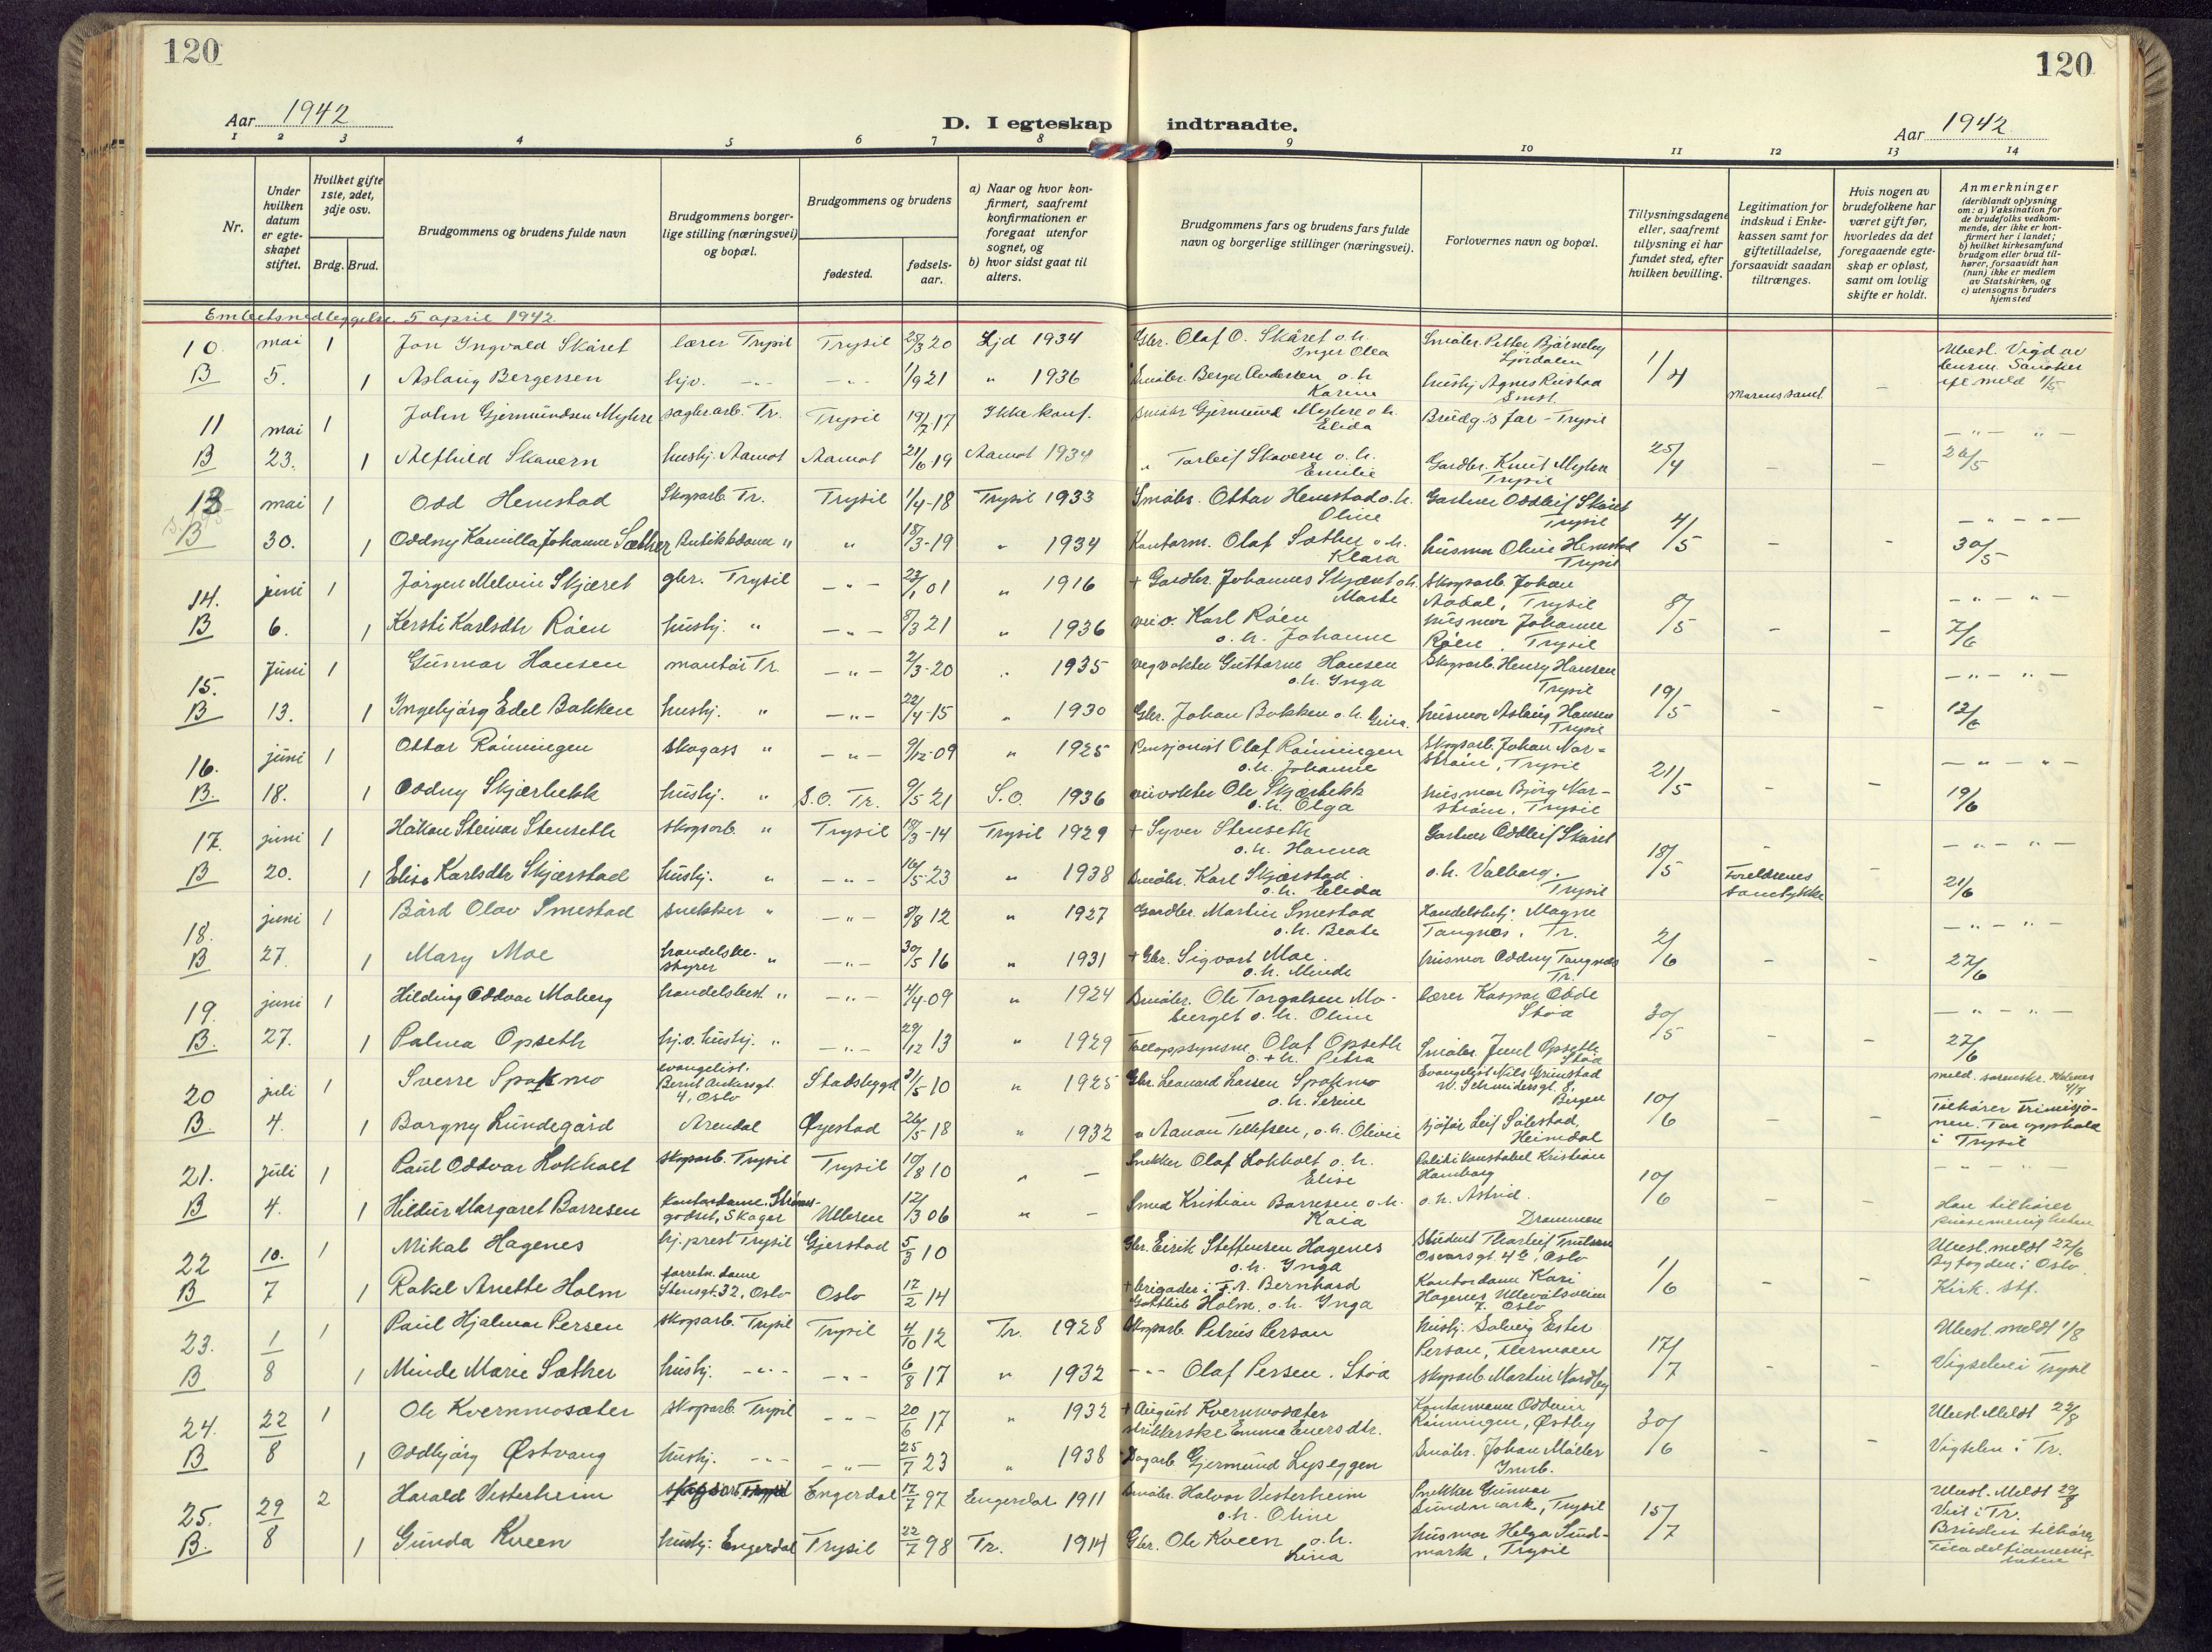 120
120
Aar 1942
D. I egteskap indtraadte.
Aar 1942
1 2 3 4 5 6 7 8 9 10 11 12 13 14
Nr.
Under hvilken datum er egteskapet stiftet.
Hvilket gifte 1ste, 2det, 3dje osv.
Brdg. Brud.
Brudgommens og brudens fulde navn
Brudgommens borgerlige stilling (næringsvei) og bopæl.
Brudgommens og brudens
fødested.
fødselsaar.
a) Naar og hvor konfirmert, saafremt konfirmationen er foregaat utenfor sognet, og
b) hvor sidst gaat til alters.
Brudgommens fars og brudens fars fulde navn og borgerlige stillinger (næringsvei).
Forlovernes navn og bopæl.
Tillysningsdagene eller, saafremt tillysning ei har fundet sted, efter hvilken bevilling.
Legitimation for indskud i Enkekassen samt for giftetilladelse, forsaavidt saadan tiltrænges.
Hvis nogen av brudefolkene har været gift før, hvorledes da det foregaaende egteskap er opløst, samt om lovlig skifte er holdt.
Anmerkninger (deriblandt oplysning om: a) Vaksination for de brudefolks vedkommende, der ikke er konfirmert her i landet; b) hvilket kirkesamfund brudgom eller brud tilhører, forsaavidt han (nun) ikke er medlem av Statskirken, og c) utensogns bruders hjemsted
Embetsnedleggelse 5 april 1942.
10 mai 1 Jon Ingvald Skåret lærer Trysil Trysil 25/3 20 Ljd 1934 Gbr. Olaf O. Skåret o.h. Inger Olea 1/4
B 5. 1 Aslaug Bergersen hjv. -"- -"- 1/9 21 " 1936 Småbr. Berger Andersen o.h. Karine husbj Agnes Rustad -
11 mai 1 John Gjermundsen Myhre sagbr.arb. Tr. Trysil 19/7 17 Ikke konf. Småbr Gjermund Myhre o.h. Elida Brudg's far - Trysil -"- "-
B 23. 1 Alfhild Skavern husbj. Aamot Aamot 21/6 19 Aamot 1934 " Torleif Skavern o.h. Emilie Gardbr. Knut Myhre Trysil 25/4 - - 26/5
13 mai 1 Odd Hemstad Skogsarb. Tr. Trysil 1/4-18 Trysil 1933 Småbr. Ottar Hemstad o.h. Oline Gartner Oddleif Skåret Trysil 4/5
B 30. 1 Oddny Kamilla Johanne Sæther Butikkdame " " 18/3-19 " 1934 Kontorm. Olaf Sæther o.h. Klara husmor Oline Hemstad Trysil - - 30/5
14. juni 1 Jørgen Melvin Skjæret gbr. Trysil -"- 23/1 01 " 1916 + Gardbr. Johannes Skjæret o.h. Marthe Skogsarb. Johan Trysil 8/5
B 6. 1 Kersti Karlsdtr Røen husbj. " -"- 8/3 21 " 1936 Karl Røen o.h. Johanne husmor Johanne Røen, Trysil - - 7/6
15. Juni 1 Gunnar Hansen montør Tr. -"- 2/3-20 " 1935 vegvokter Guttorm Hansen o.h. Inga Skogsarb. Henry Hansen Trysil 19/5
B 13. 1 Ingebjørg Edel Bakken husbj. " -"- 22/4-15 " 1930 Gbr. Johan Bakken o.h. Gina husmor Aslaug Hansen Trysil - - 12/6
16. juni 1 Ottar Rønningen skogass " -"- 9/12-09 " 1925 Pensjonist Olaf Rønningen o.h. Johanne Skogsarb. Johan Norstrøm, Trysil 21/5
B. 18. 1 Oddny Skjærbekk husbj. " S.O. Tr. 9/5-21 S.O. 1936 veivokter Ole Skjærbekk o.h. Olga husmor Bjørg Norstrøm, Trysil - - 19/6
17. juni 1 Håkon Steinar Stenseth skogsarb. " Trysil 18/3-14 Trysil 1929 + Syver Stenseth o.h. Hanna Gartner Oddleif Skåret 18/5
B 20. 1 Elise Karlsdtr Skjærstad husbj. " -"- 16/5-23 " 1938 Småbr. Karl Skjærstad o.h. Elida o.h. Valborg. Trysil Foreldrenes samtykke - 21/6
18. juni 1 Bård Olav Smestad snekker " -"- 8/8 12 " 1927 Gardbr. Martin Smestad o.h. Beate Handelsbetj. Magne Tangnes, Tr. 2/6
B 27. 1 Mary Moe handelsbestyrer " -"- 30/5 16 " 1931 + Gbr. Sigvart Moe o.h. Minda husmor Oddny Tangnes Tr. - - 27/6
19. juni 1 Hilding Oddvar Moberg handelsbest. " -"- 4/4-09 " 1924 Småbr. Ole Torgalsen Moberget o.h. Oline lærer Kaspar Odde Støa 30/5
B. 27. 1 Palma Opseth hj.v. husbj. " -"- 29/12 13 " 1929 Tolloppsynsm. Olaf Opseth o.+h. Petra Småbr. Juul Opseth Støa - - 27/6
20 juli 1 Sverre Spakmo evangelist. Bernt Ankersgt. 4, Oslo Stadsbygd 31/5 10 " 1925 Gbr. Leonard Larsen Spakmo o.h. Serine Evangelist Nils Grimstad W. Schmidersgt. 8, Bergen 10/6 meld. sorenskr.
B. 4. 1 Borgny Lundegård Arendal Øyestad 26/5-18 " 1932 " Aanon Tellefsen, o.h. Olivie sjåfør Leif Solestad, Heimdal - - Tilhører Frimisjonen. Tar opphold i Trysil
21. Juli 1 Paul Oddvar Hokholt skogsarb. Trysil Trysil 10/8 10 " - Snekker Olaf Hokholt o.h. Elise Politikonstabel Kristian Hamborg 10/6
B 4. 1 Hildur Margaret Borresen kontordame, Strømsgodset, Skoger Ullern 12/3 06 " - Smed Kristian Borresen o.h. Kaia o.h. Astrid. Drammen - - Han tilhører pinsemenigheten
22 10. 1 Mikal Hagenes hj. prest Trysil Gjerstad 5/3 10 Gbr. Eirik Steffensen Hagenes o.h. Inga Student Tharleif Oscarsgt. 4b, Oslo 1/6 Uvest. meldt 22/6 Byfogden i Oslo.
B 7 1 Rakel Anette Holm forretn. dame Stensgt. 32, Oslo Oslo 17/2 14 + brigader i F.A. Bernhard Gottlieb Holm, o.h. Ynga Kontordame Kari Hagenes Ullevålsveien 7, Oslo - - Kirk. stf.
23. 1/8 1 Paul Hjalmar Persen skogsarb. Trysil Trysil 4/10 12 Tr. 1928 Skogsarb. Petrus Person husbj. Solveig Ester Person, 17/7 meldt 1/8
B 1 Minda Marie Sæther husbj. -"- -"- 6/8 17 " 1932 -"- Olaf Persen. Støa skogsarb. Martin Nordby - - Vigselen i Trysil
24. 22/8 1 Ole Kvernmosæter skogsarb. Trysil -"- 20/6 17 " 1932 + August Kvernmosæter strikkerske Emma Enersdtr. Kontormann Oddvin Rønningen, Østby 30/6 Meldt 22/8
B 1 Oddbjørg Østvang husbj. -"- -"- 25/7 23 " 1938 Dagarb. Gjermund Lyseggen Småbr. Johan Møller Innb. - - Vigselen i Tr.
25. 29/8 2 Harald Vesterheim Engerdal 17/7 97 Engerdal 1911 Småbr. Halvor Vesterheim o.h. Oline Snekker Gunnar Sundmark, Trysil 15/7 Meldt 29/8
B. 1 Gunda Kveen husbj: Engerdal Trysil 22/7 98 Tr. 1914 Gbr. Ole Kveen o.h. Lina husmor Helga Sundmark, Trysil Bruden tilhører Filadelfiamenigheten